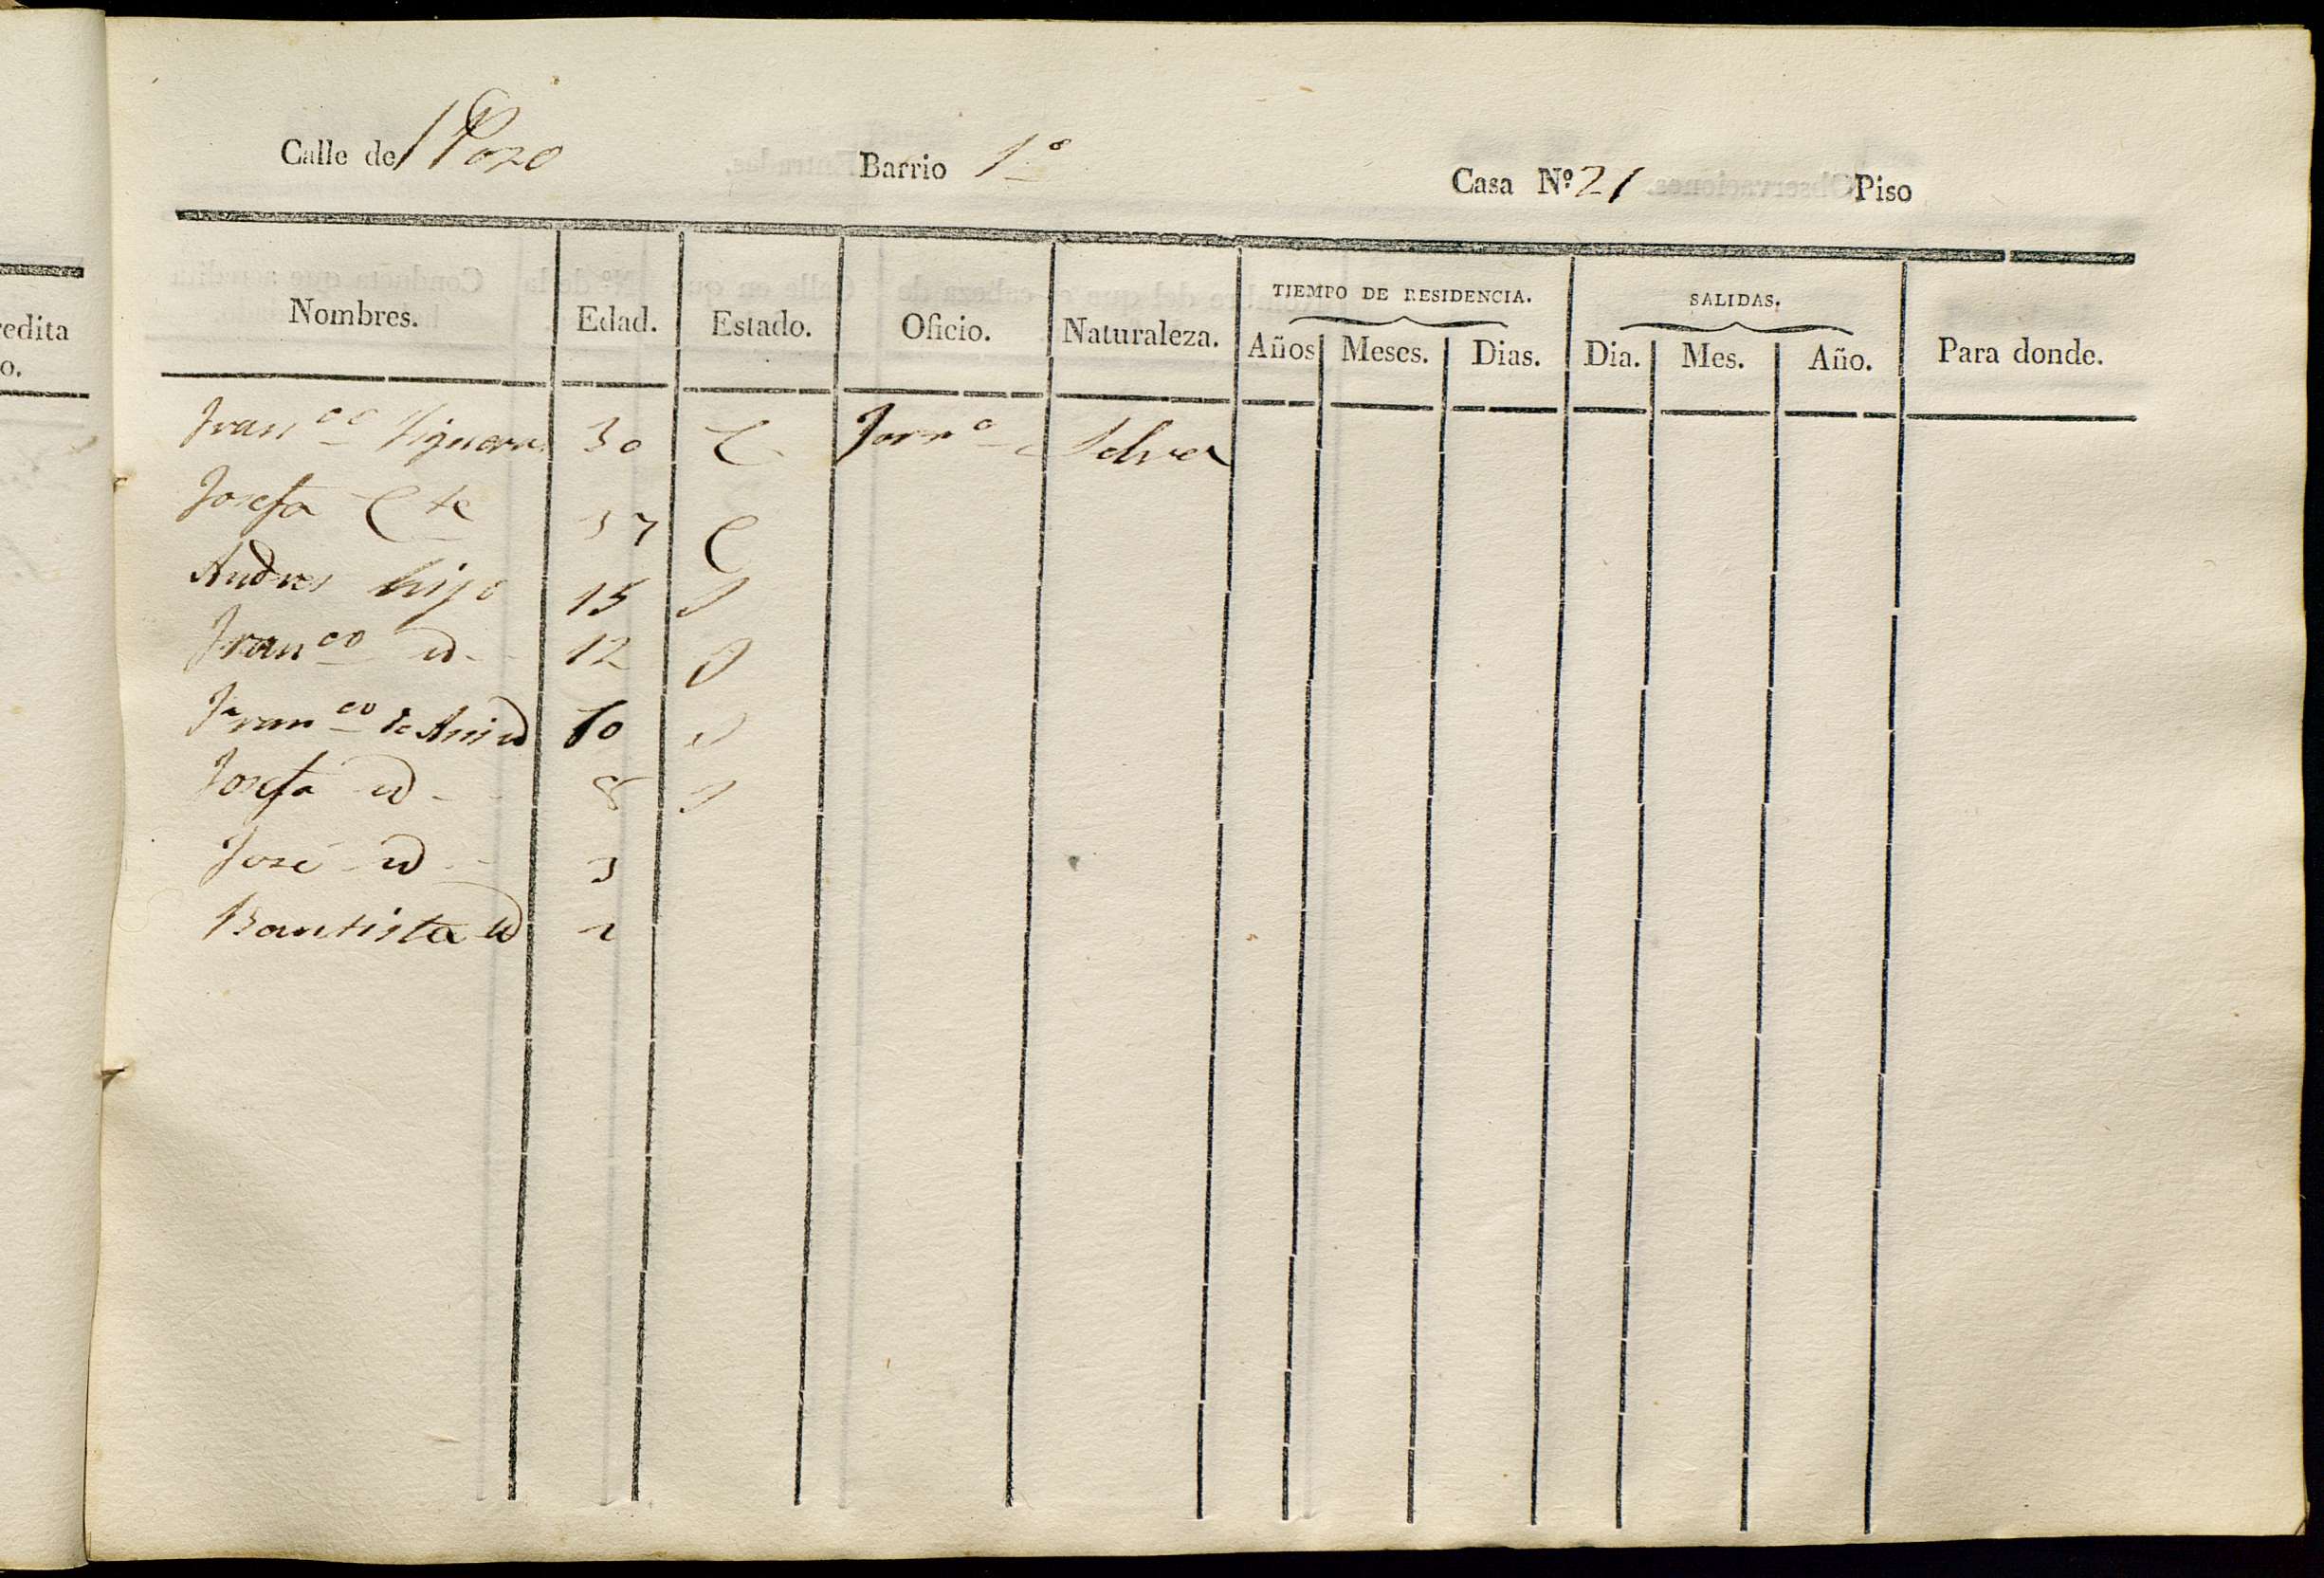 Calle del Pozo Barrio 1º Casa Nº 21 Piso
Nombres. Edad. Estado. Oficio. Naturaleza. TIEMPO DE RESIDENCIA. Años Meses. Dias. SALIDAS. Dia. Mes. Año. Para donde.
Franco Figueras 30 C Jorno Selva
Josefa Cte 37 C
Andres hijo 15 S
Franco id 12 S
Franco de Asis id 10 S
Josefa id 8 S
José id 3
Bautista id 1
redita
o.